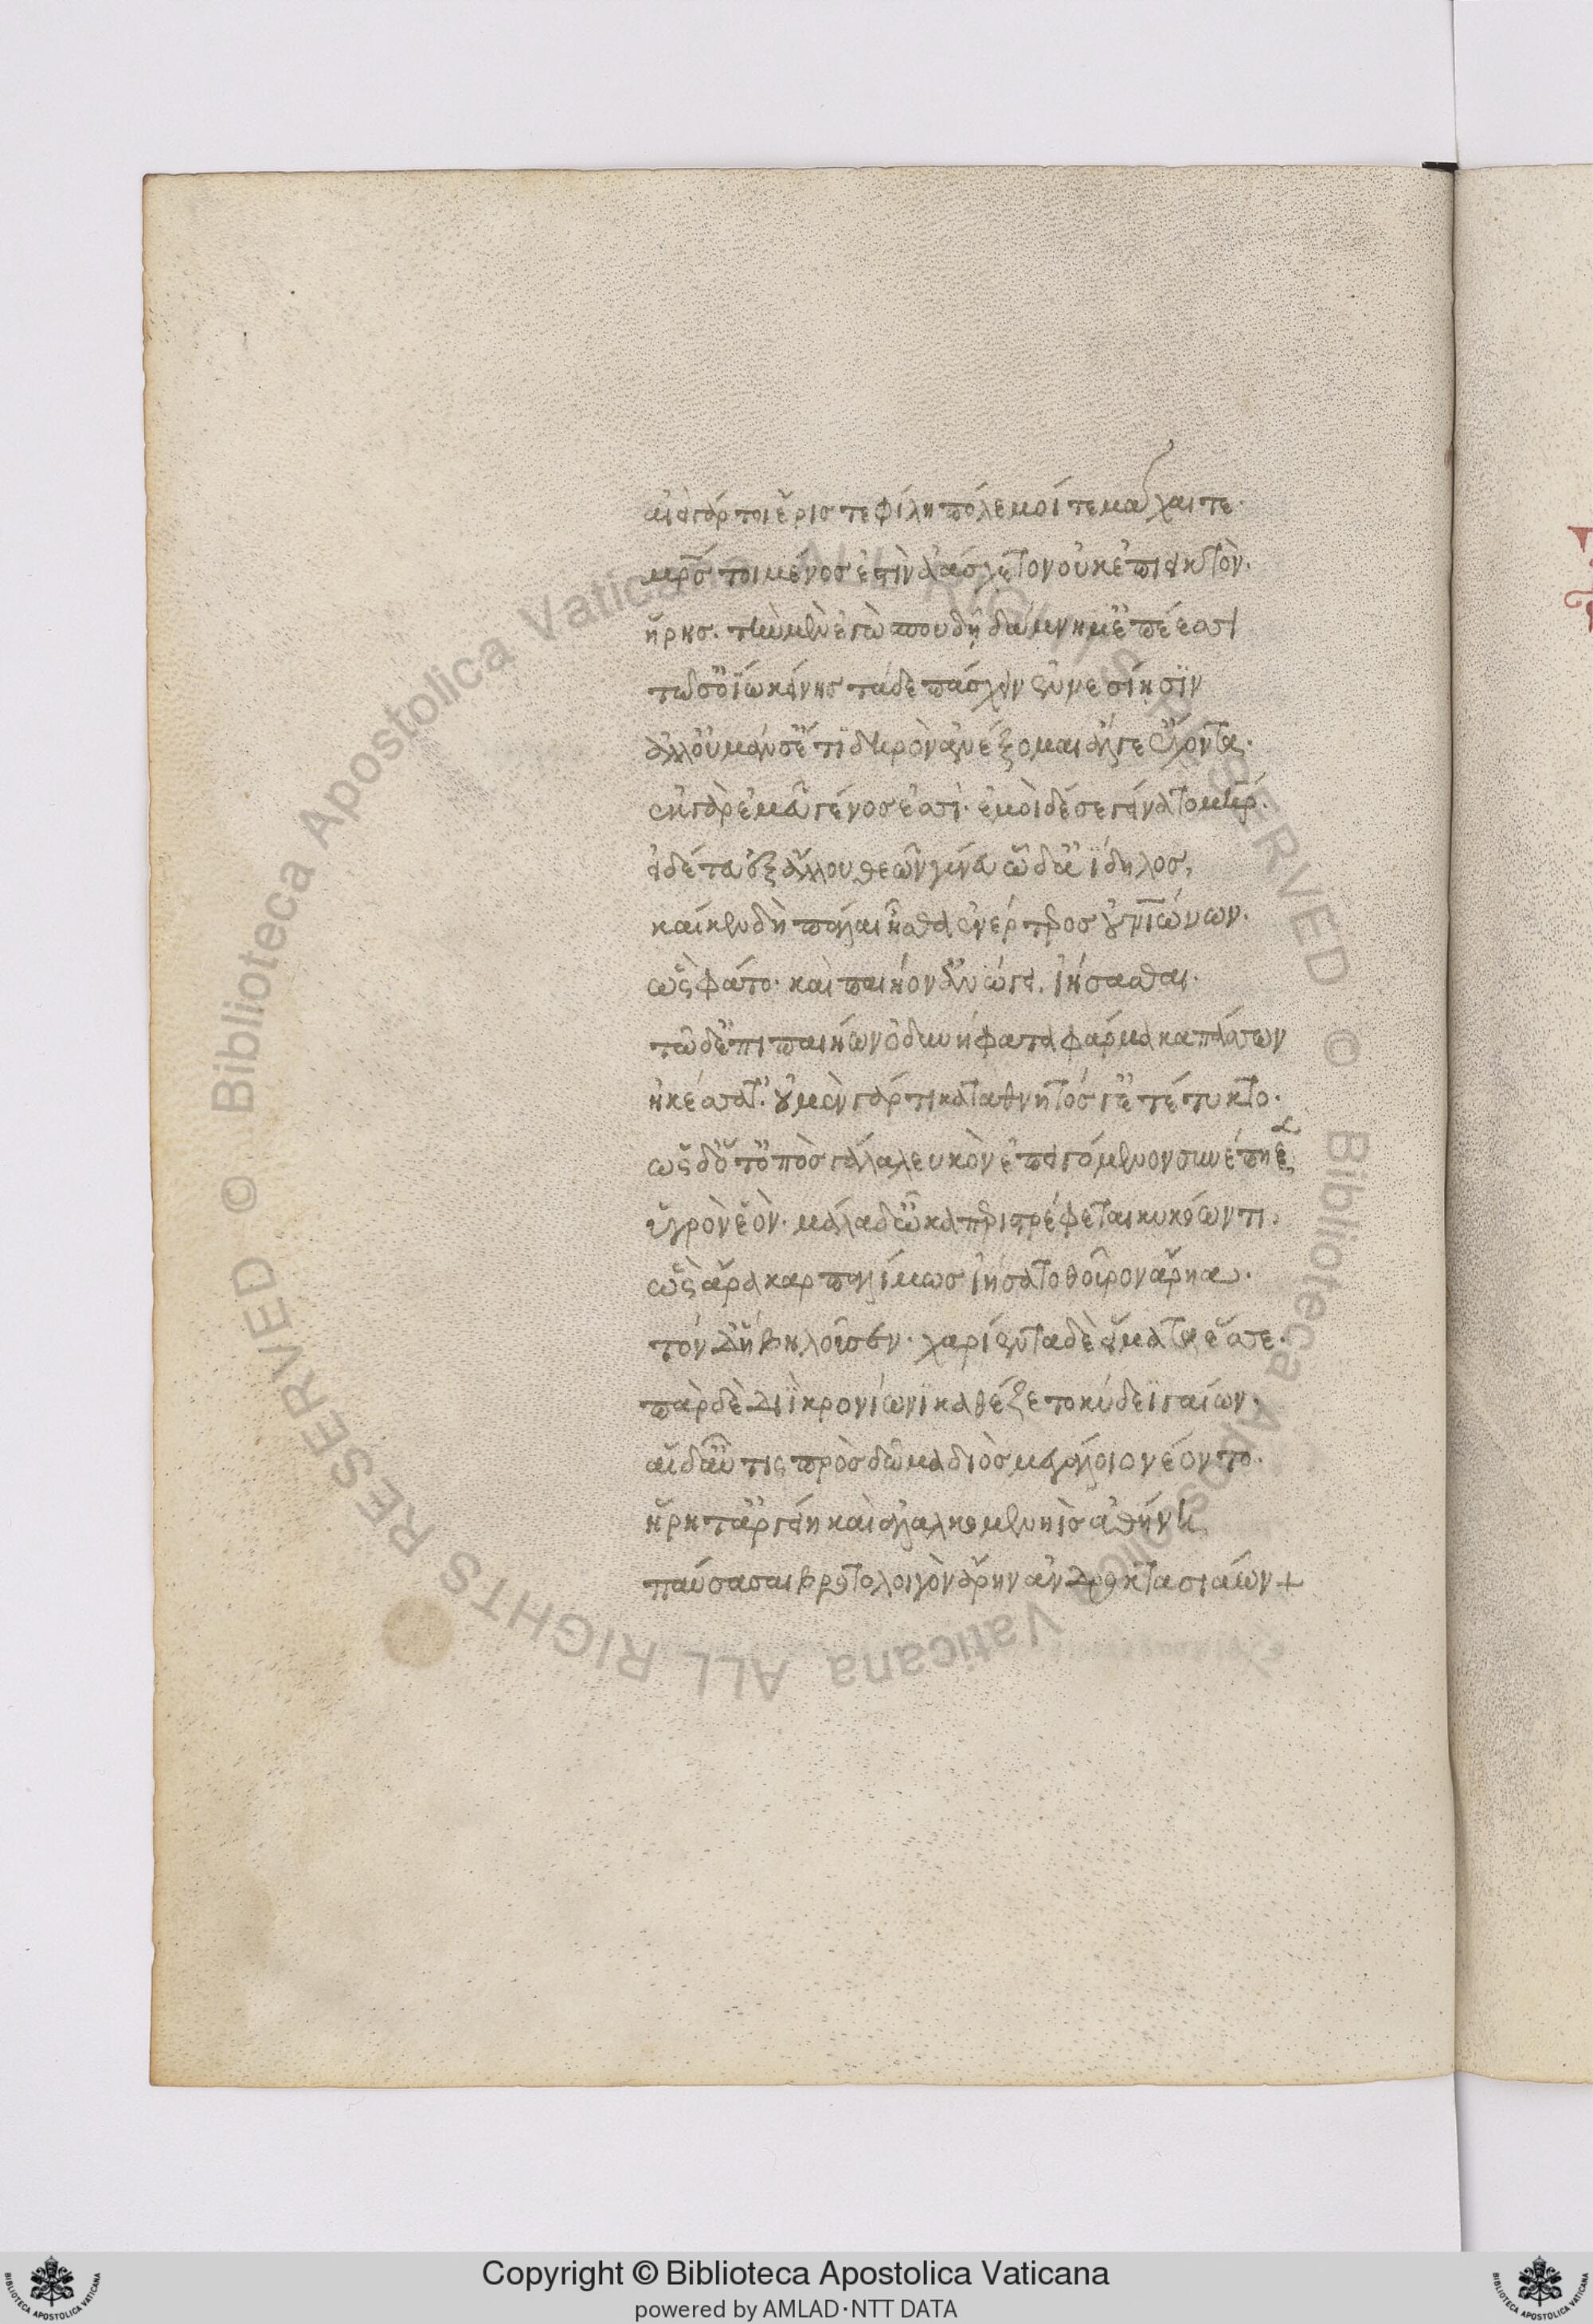 αἰεὶ γάρ τοι ἔρις τε φίλη πόλεμοί τε μάχαι τε·
μρ̅ς τοι μένος ἐστὶν ἀάσχετον οὐκ ἐπιεικτὸν.
ἥρης· τὴν μὲν ἐγὼ σπουδῇ δάμνημ' ἐπέεσσι
τῶ σ' ὀΐω κείνης τάδε πάσχειν ἐννεσίησϊν
ἀλλ' οὐ μάν σ' ἔτϊ δηρὸν ἀνέξομαι ἄλγε' ἔχοντα.
ἐκ γὰρ ἐμεῦ γένος ἐσσί· ἐμοὶ δέ σε γείνατο μήτηρ.
εἰ δέ τευ ἐξ ἄλλου θεῶν γένευ ὧδ' ἀΐδηλος,
καί κεν δὴ πάλαι ἦσθα ἐνέρτερος οὐρανιώνων.
ὣς φάτο· καὶ παιήον' ἀνώγει ἰήσασθαι.
τῶ δ' ἐπὶ παιήων ὀδυνήφατα φάρμακα πάσσων
ἠκέσατ'· οὐ μὲν γάρ τι καταθνητός γ' ἐτέτυκτο.
ὡς δ' ὅτ' ὀπὸς γάλα λευκὸν ἐπειγόμενον συνέπηξε
ὑγρὸν ἐὸν· μάλα δ' ὦκα περιστρέφεται κυκόωντι.
ὣς ἄρα καρπαλίμως ἰήσατο θοῦρον ἄρηα.
τόν δ' ἥβη λοῦσεν· χαρίεντα δὲ εἵματα ἕσσε.
πὰρ δὲ διῒ κρονίωνι καθέζετο κύδεϊ γαίων.
αἱ δ' αὖτις πρὸς δῶμα διὸς μεγάλοιο νέοντο.
ἥρη τ' ἀργείη καὶ ἀλαλκομενηὶς ἀθήνη
παύσασαι βροτολοιγὸν ἄρην ἀνδροκτασιάων +
Copyright © Biblioteca Apostolica Vaticana
powered by AMLAD·NTT DATA